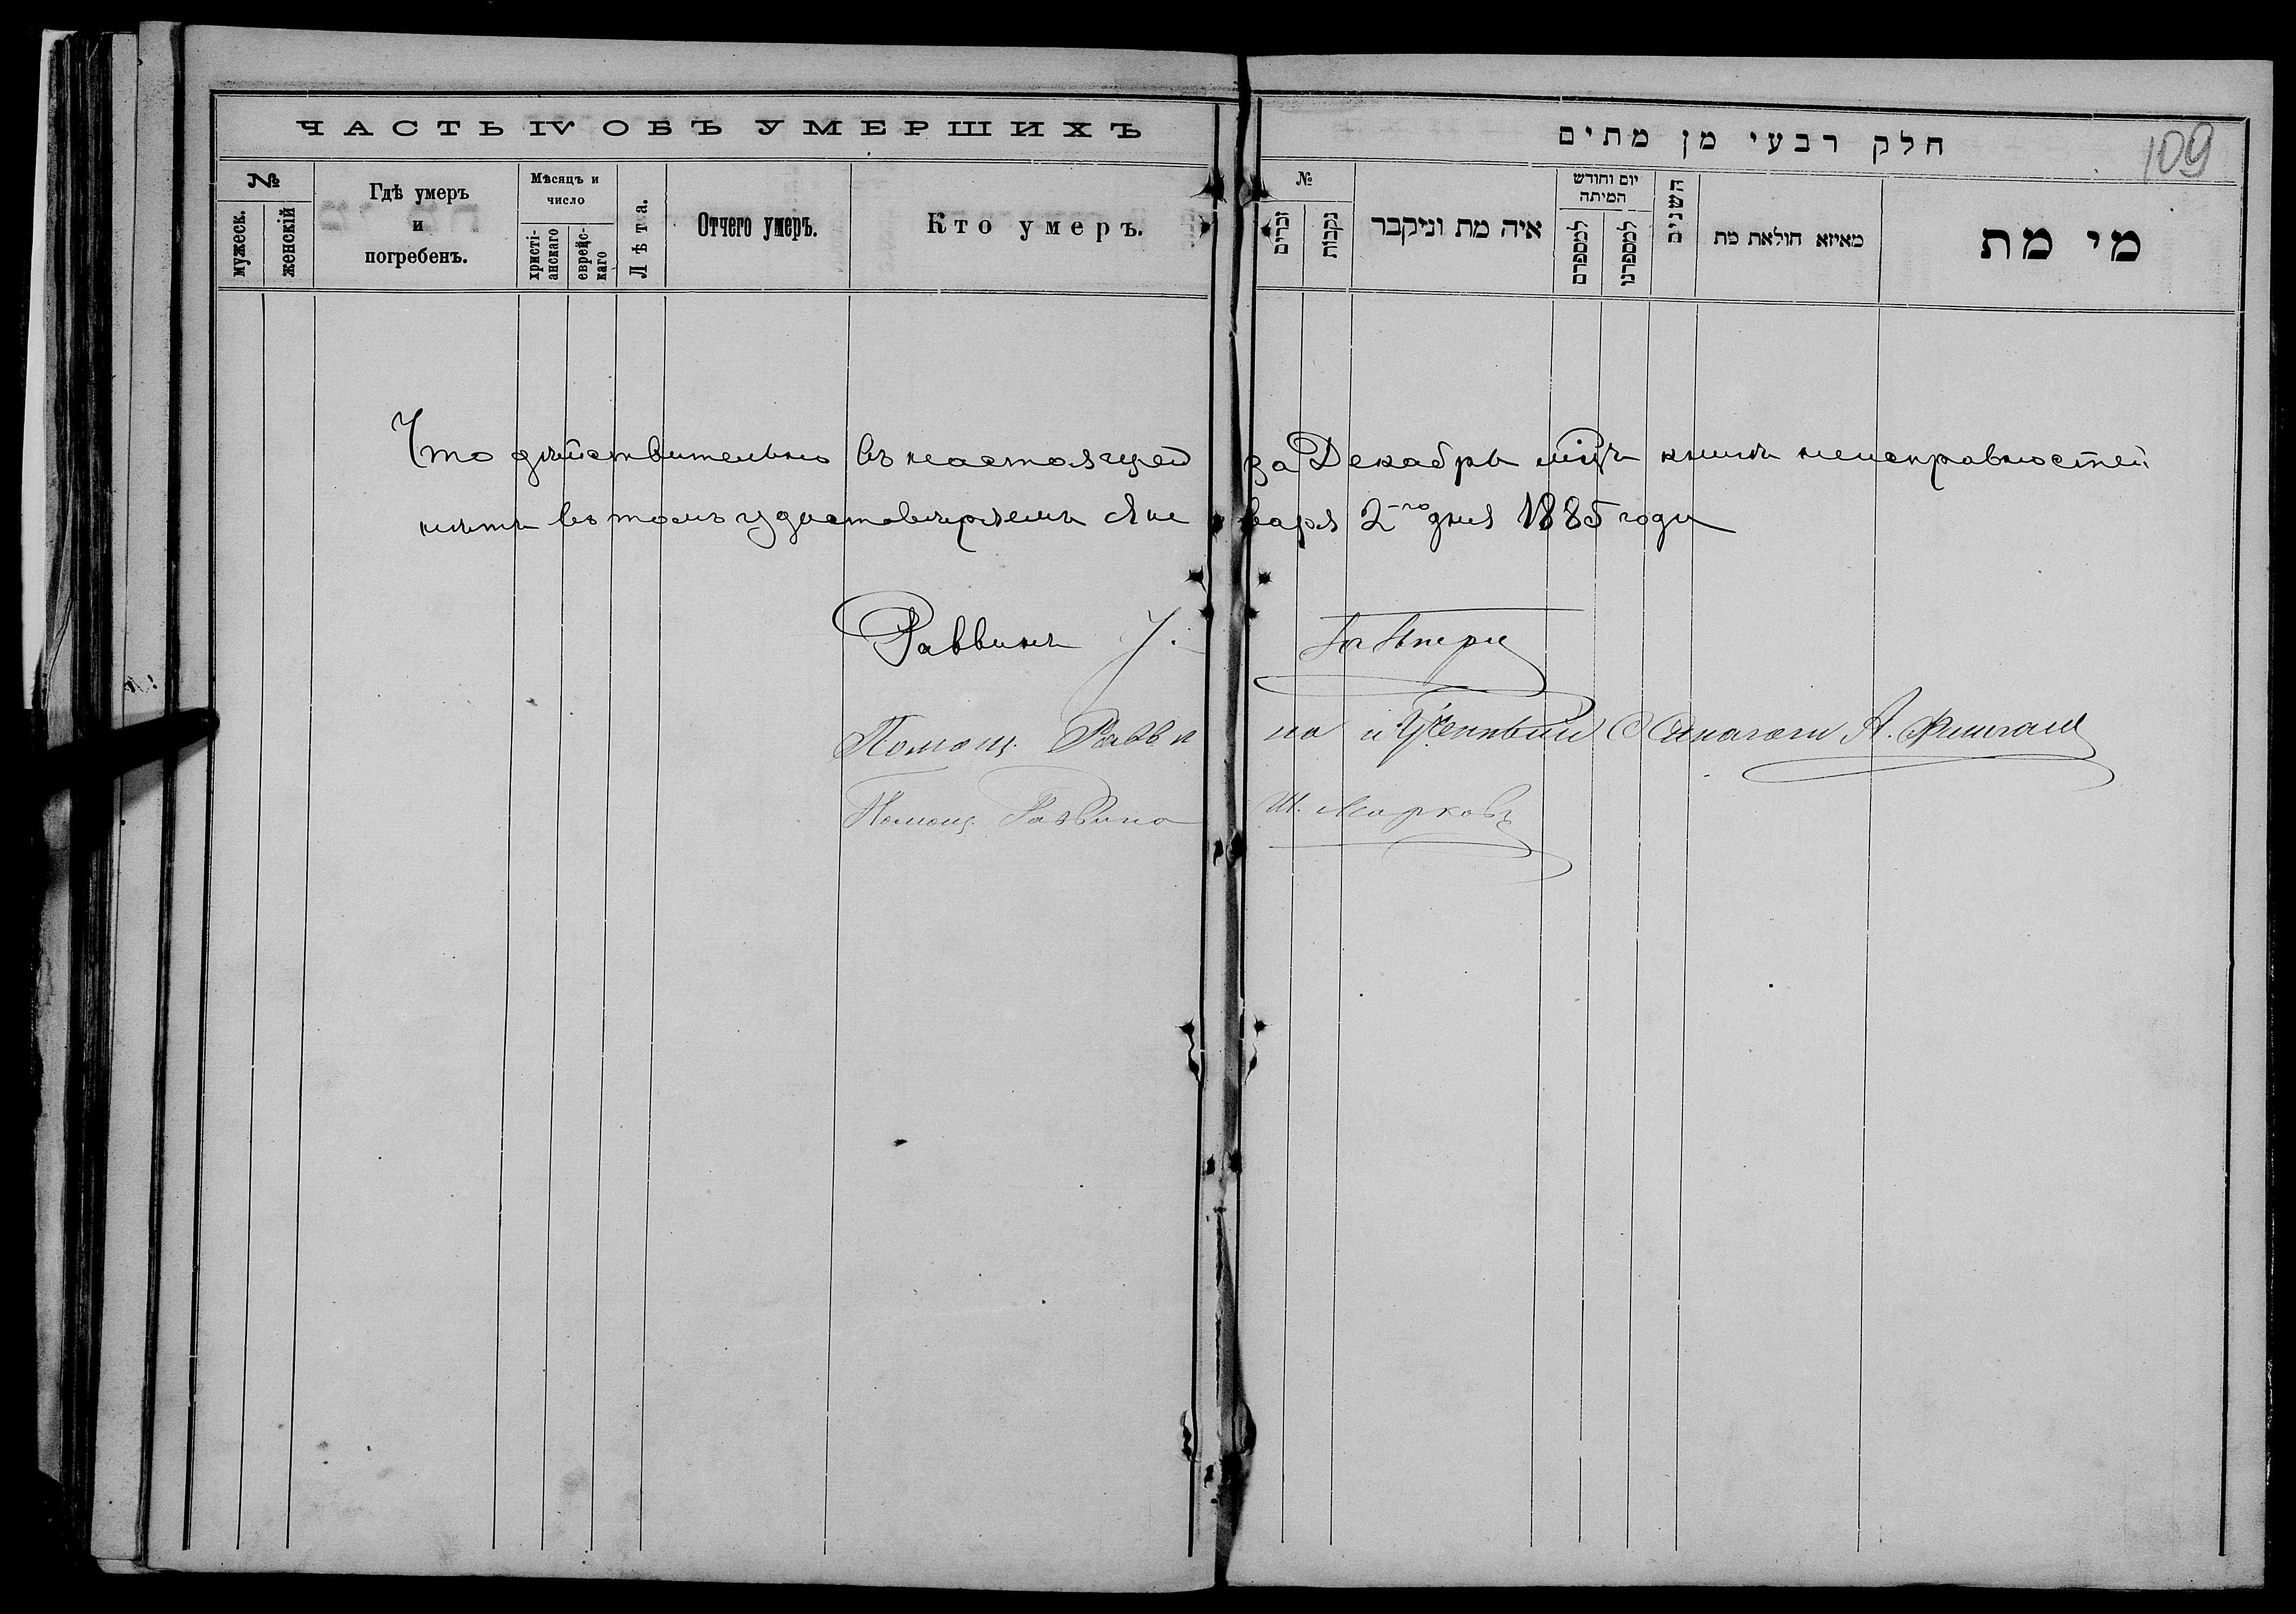 ЧАСТЬ IV ОБЪ УМЕРШИХЪ
№
мужеск.
женскій
Гдѣ умеръ
и
погребенъ.
Мѣсяцъ и
число
христі-
анскаго
еврейс-
каго
Лѣта.
Отчего умеръ.
Кто умеръ.
חלק רבעי מן מתים
109
№
זכרים
נקבות
איה מת וניקבר
יום וחודש
המיתה
למספרם
למספרנו
השנים
מאיזא חולאת מת
מי מת
Что дѣйствительно въ настоящей за Декабрь мцъ книгѣ неисправностей
нѣтъ въ томъ удостовѣряемъ Января 2-го дня 1885 года
Раввинъ
Помощ. Раввина и Ученный Синагоги А.
Помощ. Раввина Ш. Марковъ